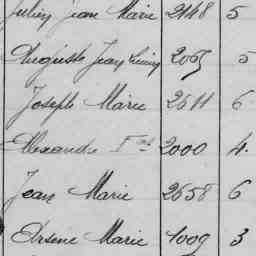 Julien Jean Marie 2448 5
Auguste Jean 2065 5
Joseph Marie 2511 6
Alexandre Fois 2000 4
Jean Marie 2658 6
Arsène Marie 1009 3